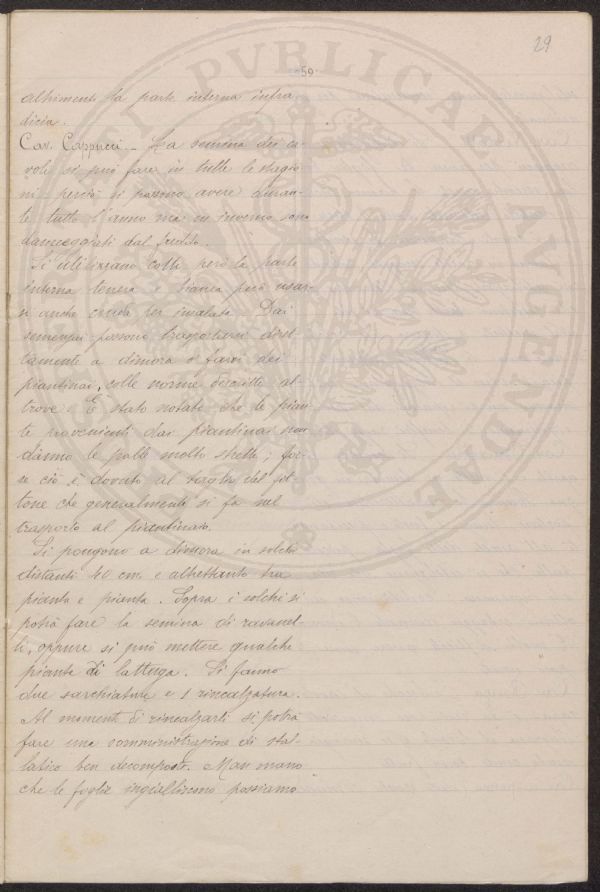 29
59
altrimenti la parte interna infra
dicia.
Cav. Cappucci - La semina dei ca-
voli si può fare in tutte le stagio
ni perciò si possono avere duran-
te tutto l'anno ma in inverno sono
danneggiati dal freddo.
Si utilizzano cotti però la parte
interna tenera e bianca può usar-
si anche cruda per insalata. Dai
semenzai possono trasportarsi diret-
tamente a dimora o farsi dei
piantinai, colle norme descritte al-
trove. È stato notato che le pian-
te provenienti dai piantinai non
danno le palle molto strette; for-
se ciò è dovuto al taglio del fit-
tone che generalmente si fa nel
trasporto al piantinaio.
Si pongono a dimora in solchi
distanti 40 cm. e altrettanto tra
pianta e pianta. Sopra i solchi si
potrà fare la semina di ravanel-
li, oppure si può mettere qualche
piante di lattuga. Si fanno
due sarchiature e 1 rincalzatura.
Al momento di rincalzarli si potrà
fare una somministrazione di stal-
latico ben decomposto. Man mano
che le foglie ingialliscono possiamo
PVBLICAE
AVGENDAE